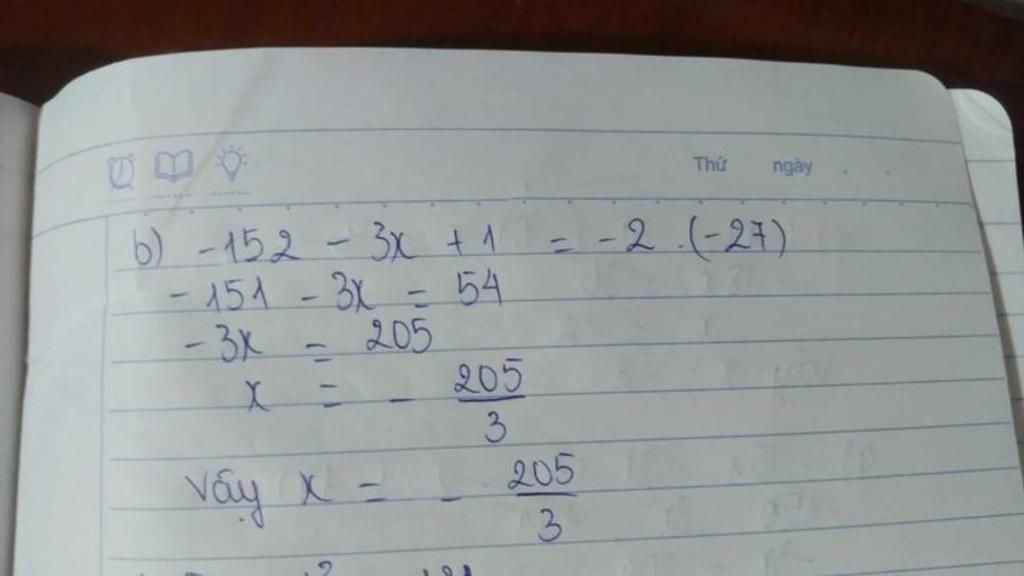 Thứ ngày
b) -152 - 3x + 1 = -2 . (-27)
-151 - 3x = 54
-3x = 205
x = - 205/3
Vậy x = - 205/3